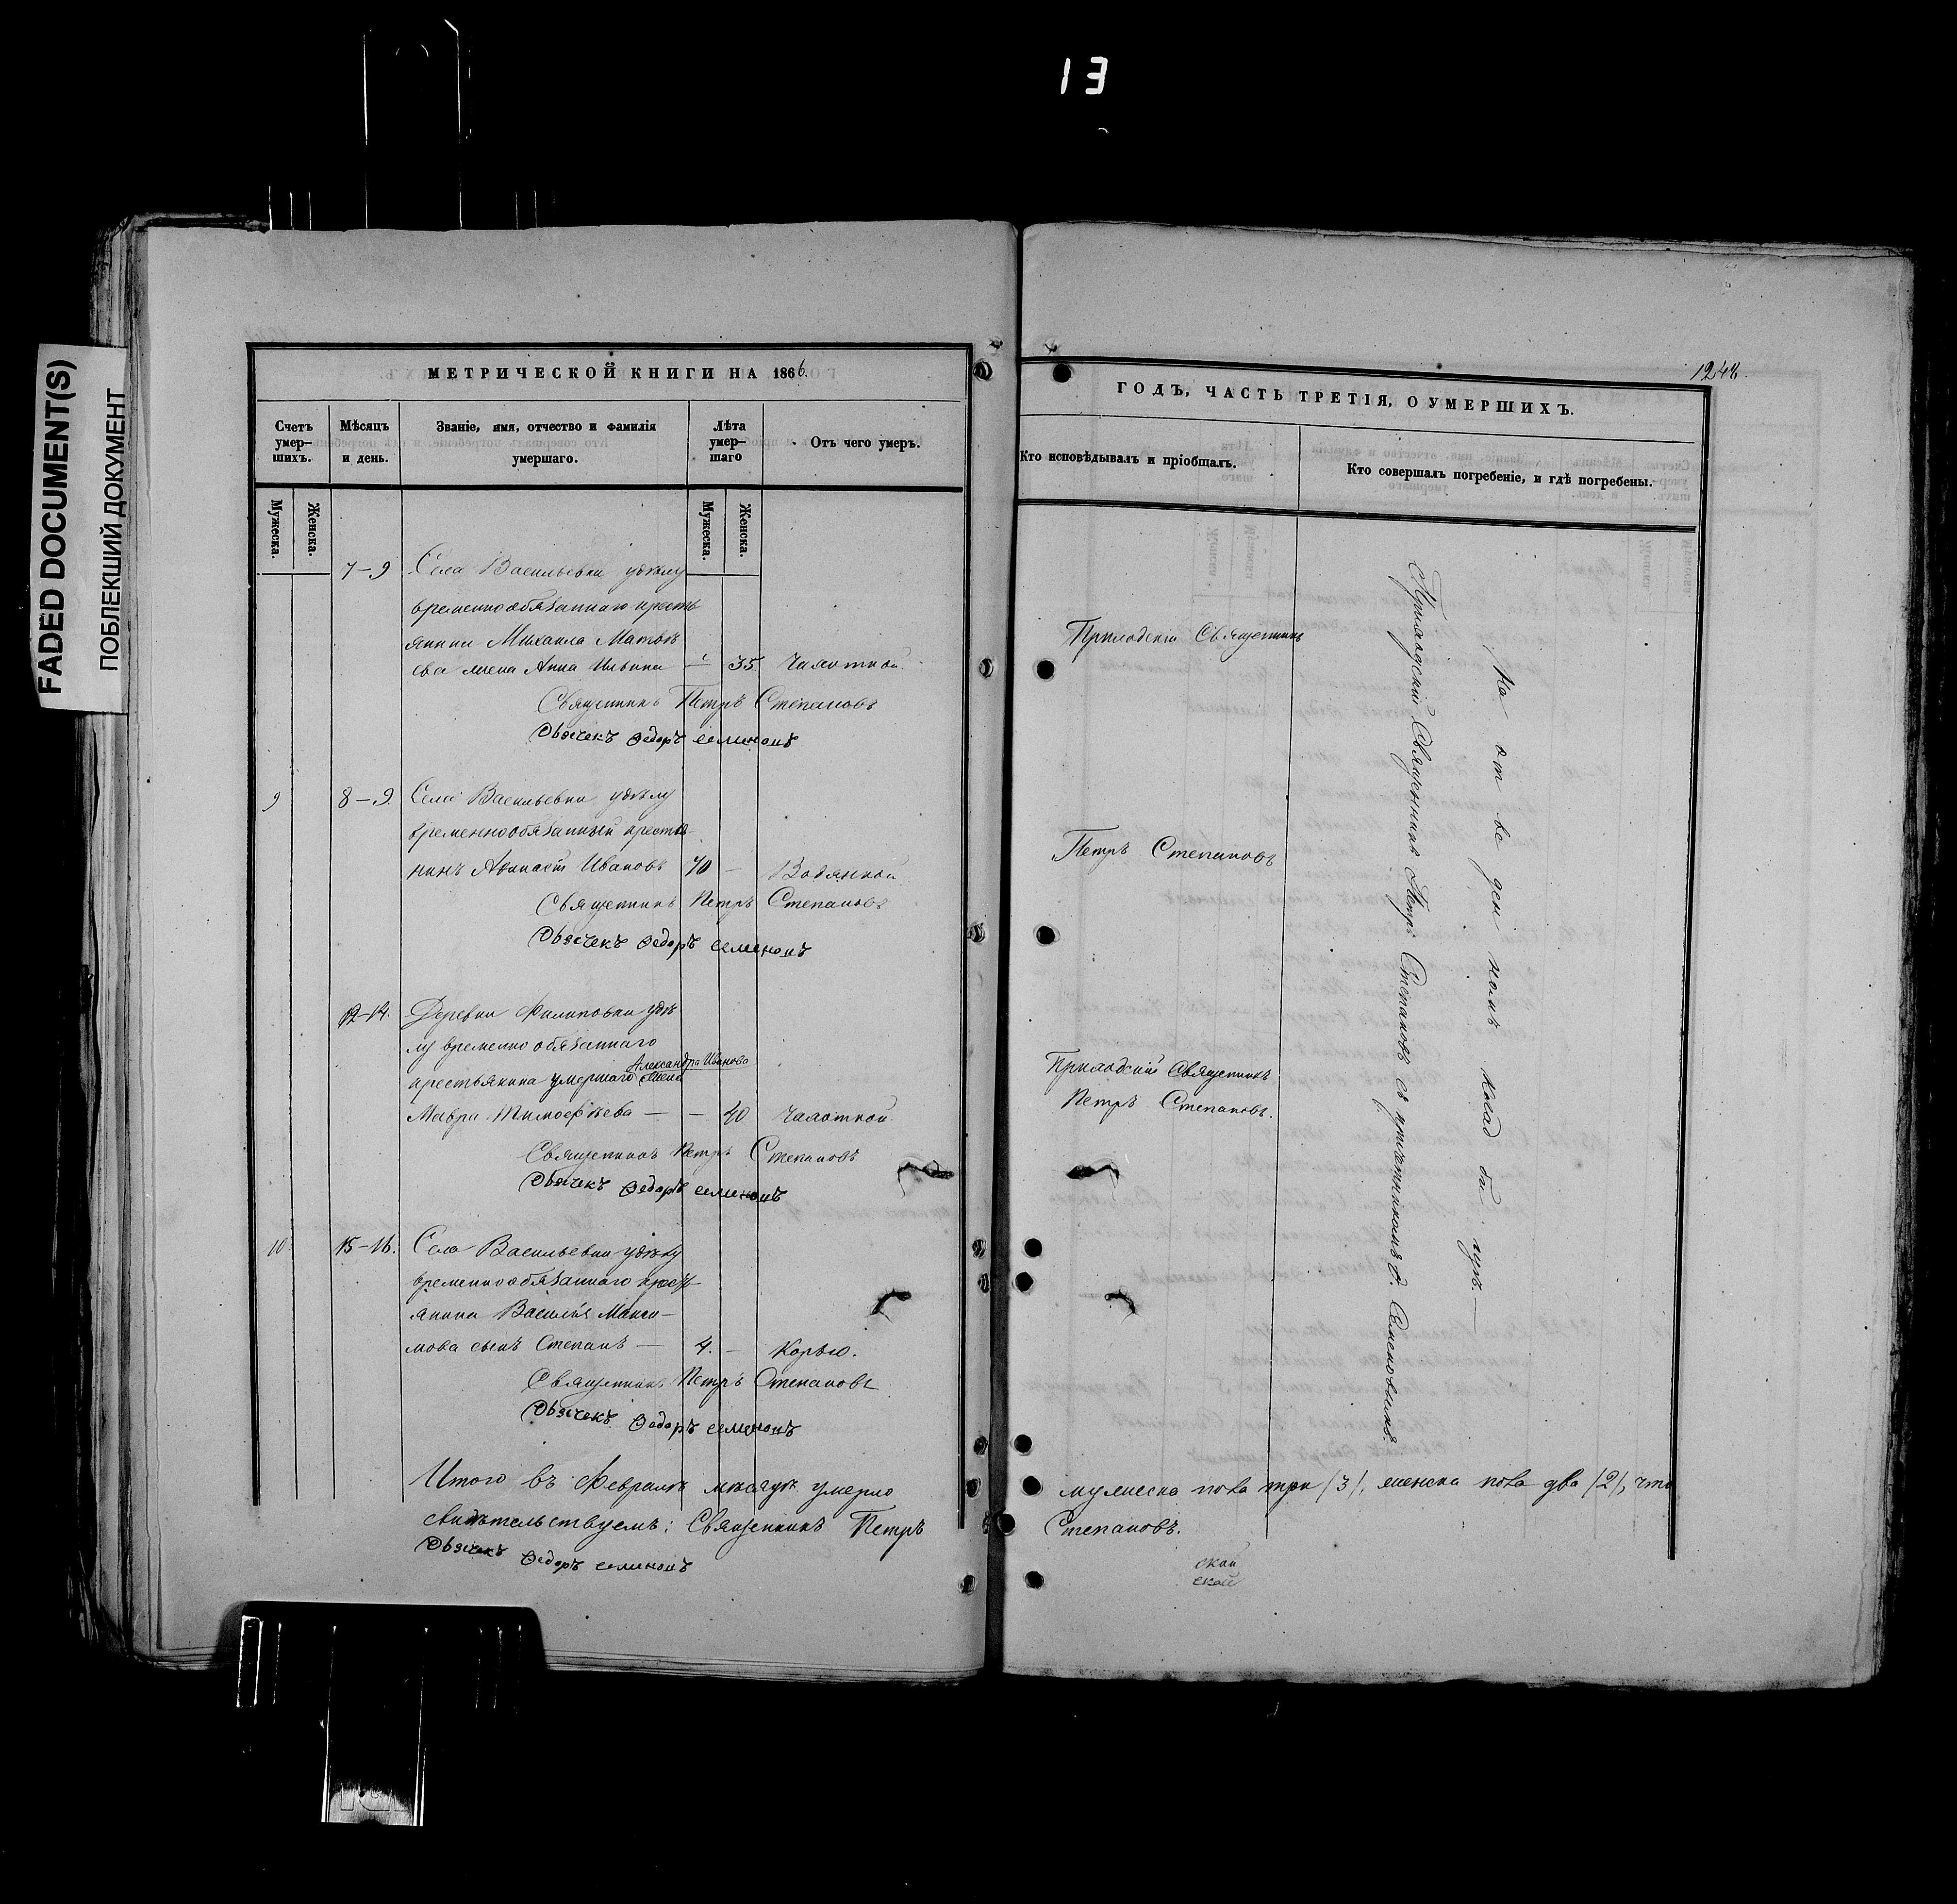 13
FADED DOCUMENT(S)
ПОБЛЕКШИЙ ДОКУМЕНТ
МЕТРИЧЕСКОЙ КНИГИ НА 1866.
Счетъ умер-шихъ.
Мѣсяцъ и день.
Званіе, имя, отчество и фамилія умершаго.
Лѣта умер-шаго
Отъ чего умеръ.
Мужеска.
Женска.
Мужеска.
Женска.
7–9 Села Васильевки удѣлу
временнообязаннаго кресть
янина Михаила Матвѣ
ева жена Анна Ильина 35 Чахоткой.
Священникъ Петръ Степановъ
Дьячекъ Ѳедоръ Семеновъ
9 8–9. Села Васильевки удѣлу
временнообязанный крестья-
нинъ Ивановъ 70 – Водянкой
Священникъ Петръ Степановъ
Дьячекъ Ѳедоръ Семеновъ
12–14. Деревни Филиповки удѣ
лу временно обязаннаго
Александра Иванова
крестьянина умершаго жена
Мавра Тимофѣева — – 40 Чахоткой
Священникъ Петръ Степановъ
Дьячекъ Ѳедоръ Семеновъ
10 15–16. Села Васильевки удѣлу
временнообязаннаго крест
янина Василія Макси-
мова сынъ Степанъ — 4. – Корью.
Священникъ Петръ Степановъ
Дьячекъ Ѳедоръ Семеновъ
Итого въ Февралѣ мѣсяцѣ умерло
свидѣтельствуемъ: Священникъ Петръ
Дьячекъ Ѳедоръ Семеновъ
1248.
ГОДЪ, ЧАСТЬ ТРЕТІЯ, О УМЕРШИХЪ.
Кто исповѣдывалъ и пріобщалъ.
Кто совершалъ погребеніе, и гдѣ погребены.
Приходскій Священникъ
Петръ Степановъ
Приходскій Священникъ
Петръ Степановъ.
Приходскій Священникъ Петръ Степановъ съ причетникомъ Ѳ. Семеновымъ.
На от ве ден номъ клад би щѣ. —
мужеска пола три /3/, женска пола два /2/, что
Степановъ.
ской